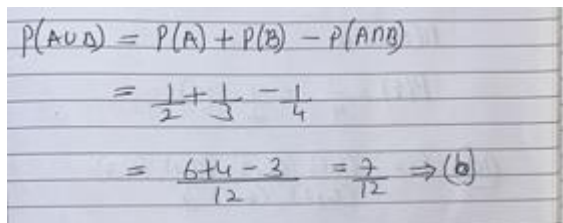 P(A∪B) = P(A) + P(B) - P(A∩B)
= 1/2 + 1/3 - 1/4
= (6+4-3)/12 = 7/12 ⇒ (b)